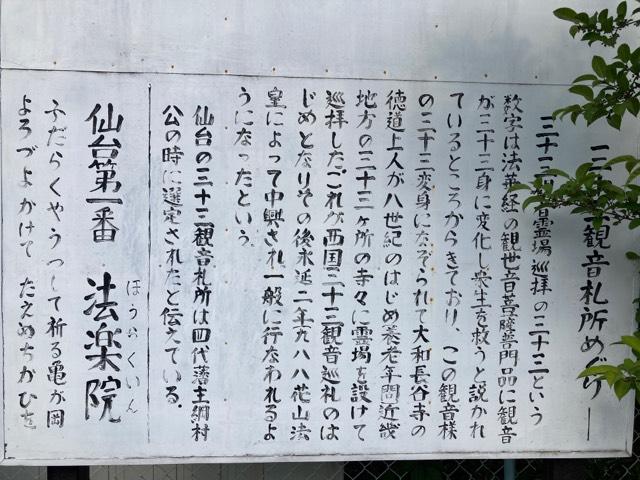 三十三観音札所めぐり
三十三観音霊場巡拝の三十三という
数字は法華経の観世音菩薩普門品に観音
が三十三身に変化し衆生を救うと説かれ
ているところからきており、この観音様
の三十三変身になぞられて大和長谷寺の
徳道上人が八世紀のはじめ養老年間近畿
地方の三十三ヶ所の寺々に霊場を設けて
巡拝したこれが西国三十三観音巡礼のは
じめとなりその後永延二年九八八花山法
皇によって中興され一般に行なわれるよ
うになったという。
仙台の三十三観音札所は四代藩主綱村
公の時に選定されたと伝えている。
仙台第一番 法楽院
ほうらくいん
ふだらくやうつして祈る亀が岡
よろづよかけて たえぬちかひを